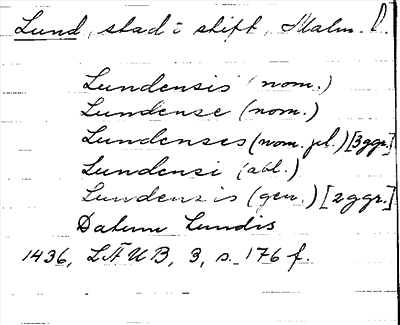 Lund, stad i skift, Malm. l.
Lundensis (nom.)
Lundense (nom.)
Lundenses (nom. pl.) [3 ggr.]
Lundensi (abl.)
Lundensis (gen.) [2 ggr.]
Datum Lundis
1436, LÄUB, 3, s. 176 f.